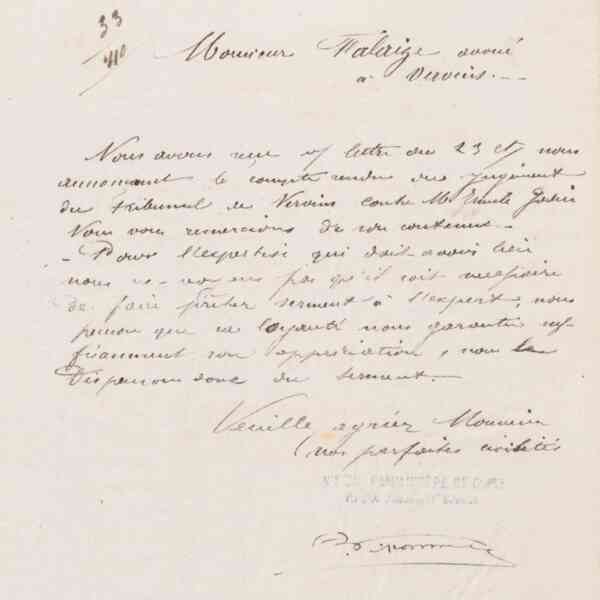 33
410
Monsieur Falaize avoué
à Vervins.--
Nous avons reçu v/ lettre du 23 ct nous
annonçant le compte rendu du jugement
du Tribunal de Vervins contre Mr Emile Godin
Nous vous remercions de son contenu.-
- Pour l'expertise qui doit avoir lieu
nous ne voyons pas qu'il soit nécessaire
de faire prêter serment à l'expert, nous
pensons que sa loyauté nous garantie suf-
fisamment son appréciation, nous le
Dispensons donc du serment.-
Veuillez agréer Monsieur
nos parfaites civilités
FAMILISTÈRE DE GUISE